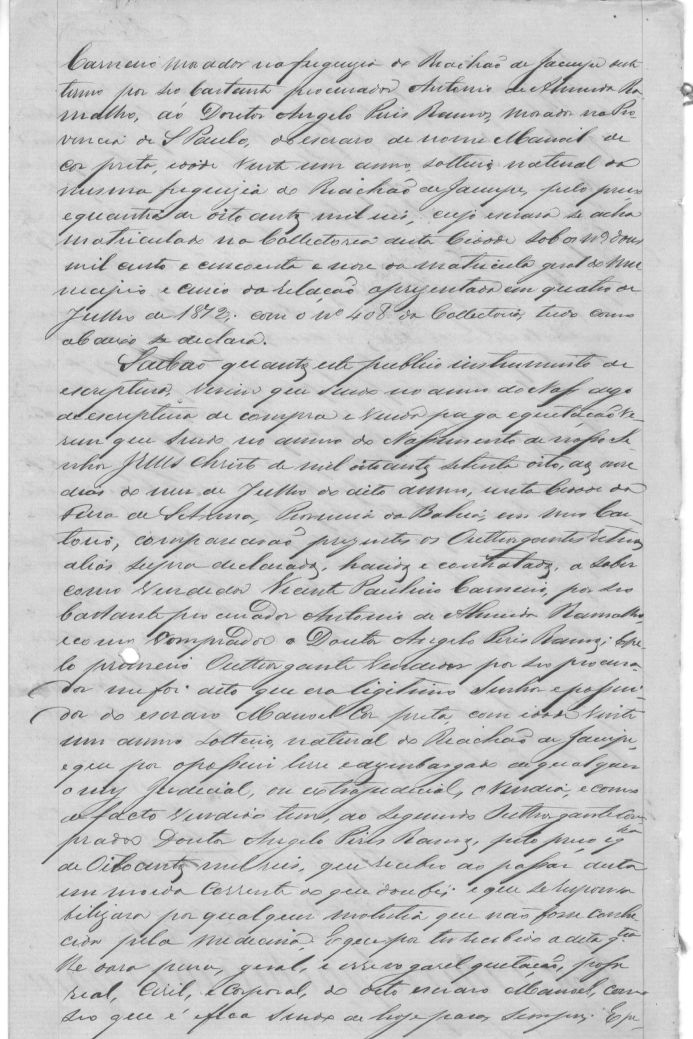 Carneiro morador na freguezia do Riachão de Jacuipe deste
termo por seo bastante procurador Antonio de Almeida Ra
malho, ao Doutor Angelo Pires Ramos, morador na Pro
vincia de S Paulo, do escravo de nome Manoel de
cor preta, idade vinte um anno, solteiro, natural da
mesma freguizia do Riachão de Jacuipe, pelo preço
e quantia de oito centos mil reis, cujo escravo se acha
matriculado na Collectoria desta Cidade sob os nos dous
mil cento e cincoenta e nove da matricula geral do Mu
nicipio e cinco da relação aprezentada em quatro de
Julho de 1872, com o nº 408 da Collectoria, tudo como
abaixo se declara.
Saibão quantos este publico instrumento de
escriptura, virem que sendo no anno do Nas digo
de escriptura de compra e venda paga e quitação vi
rem que sendo no anno do Nassimento de nosso Se
nhor JESUS Christo de mil oitocentos setenta oito, aos
dias do mez de Julho do dito anno, nesta Cidade da
Feira de Sta Anna, Provincia da Bahia, em meo Car
torio, comparecerão prezentes os Outhorgantes
aliás supra declarados, havidos e contratados, a saber
como vendedor Vicente Paulino Carneiro, por seo
bastante procurador Antonio de Almeida Ramalho
e como Comprador o Doutor Angelo Pires Ramos; e pe
lo primeiro Outhorgante vendedor por seo procura
dor me foi dito que era legitimo Senhor e possui
dor do escravo Manoel Cor preta, com idade vinte
um anno solteiro, natural do Riachão de Jacuipe,
e que por o possuir livre e dezembargado de qualquer
onus Judicial, ou extrajudicial, o vendia, e como
de facto vendido tem, ao segundo Outhorgante Com
prador Doutor Angelo Pires Ramos, pelo preço e qtia
de Oito centos mil reis, que recebeo ao passar desta
em moeda corrente do que dou fé; e que se responsa
bilizara por qualquer molestia que não fosse conhe
cida pela medicina. E que por ter recebido a dita qtia
lhe dava plena, geral, e irrevogavel quitação, posse
real, Civil, e Corporal, do dito escravo Manoel, como
seo que é e fica sendo de hoje para sempre. E pe